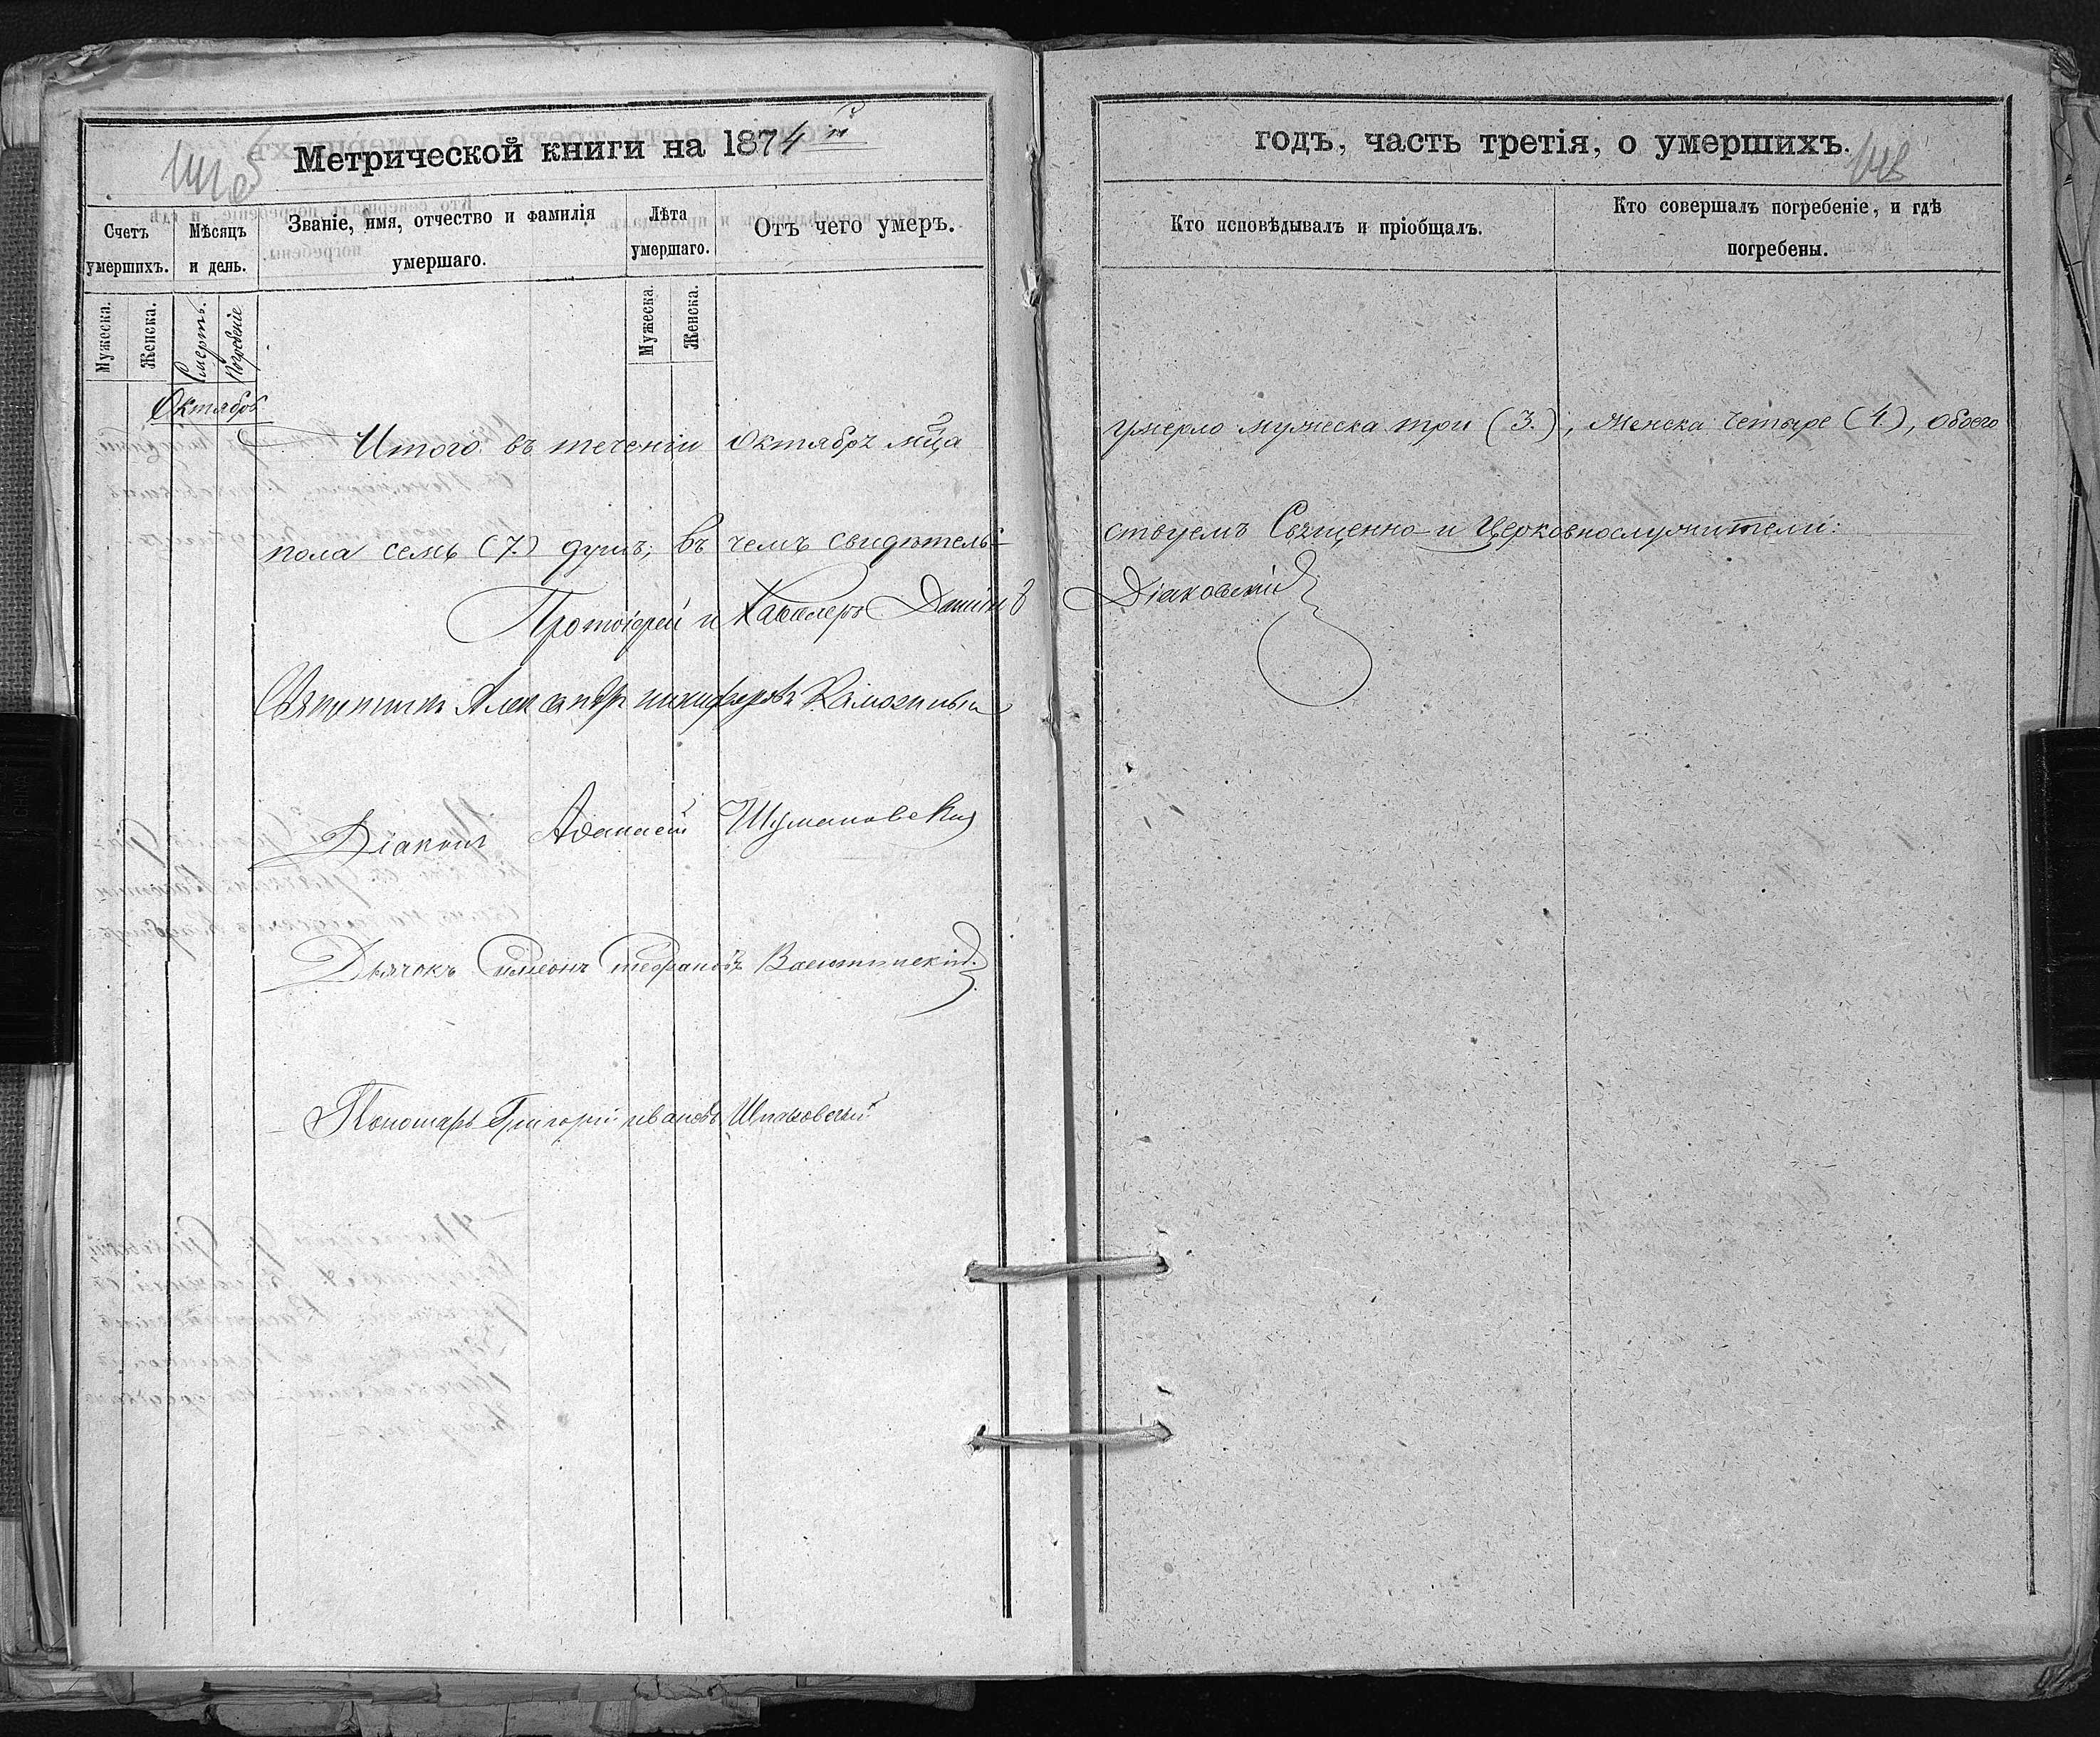 Метрической книги на 1874й
Счетъ умершихъ.
Мѣсяцъ и день.
Званіе, имя, отчество и фамилія умершаго.
Лѣта умершаго.
Отъ чего умеръ.
Мужеска.
Женска.
Смерть.
Погребеніе
Мужеска.
Женска.
Октябрь
Итого въ теченіи Октября мца
пола семь (7.) душъ; въ чемъ свидѣтель-
Протоіерей и Кавалеръ Даніилъ
Священникъ Александръ Никифоровъ
Діаконъ Аѳанасій Шумановскій
Дьячокъ Симеонъ Стефановъ
Пономарь Григорій Ивановъ
годъ, часть третія, о умершихъ.
148
Кто исповѣдывалъ и пріобщалъ.
Кто совершалъ погребеніе, и гдѣ погребены.
умерло мужеска три (3.), женска четыре (4.), обоего
ствуемъ Священно-и Церковнослужители:
Діаковскій